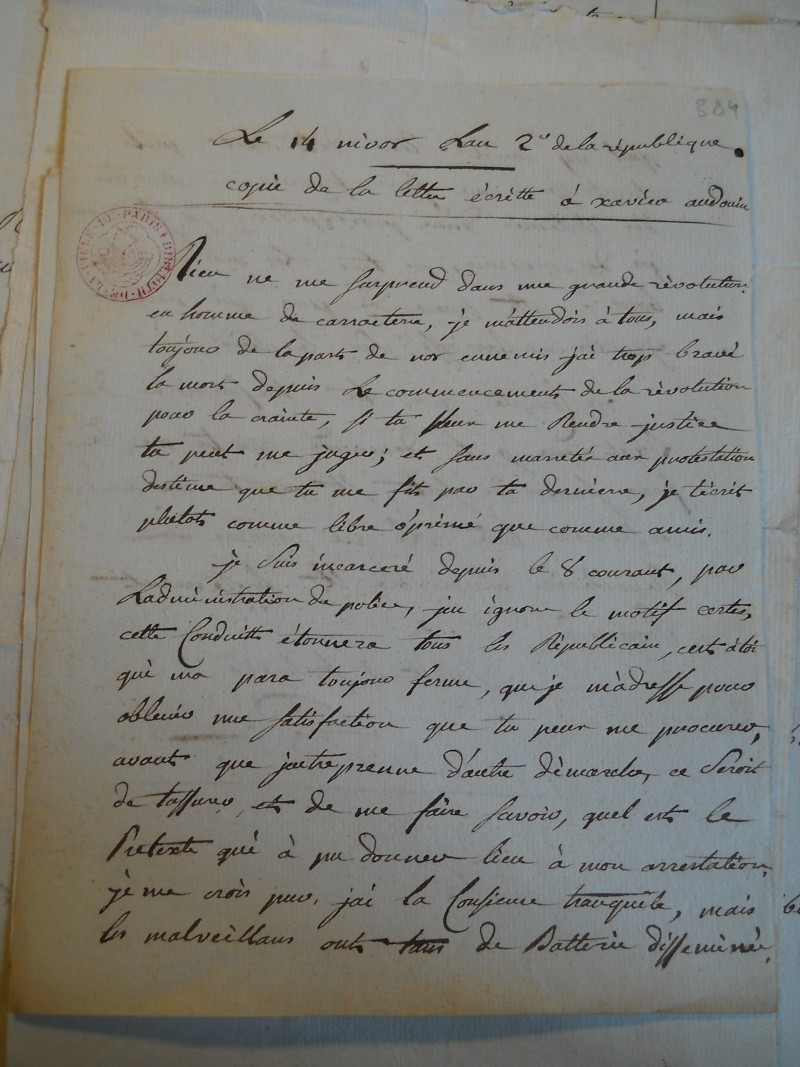 384
Le 14 nivos Lan 2e de la république.
copie de la lettre écritte à xavier audouin
Rien ne me surprend dans une grande rèvolution,
en homme de carractere, je m'attendois à tous, mais
toujous de la parts de nos ennemis jai trop bravé
la mort depuis le commencements de la rèvolution
pour la crainte, si tu peux me Rendre justice
tu peut me juger; et sans marretér aux protestation
destime que tu me fits par ta derniere, je t'écrit
plutots comme libre oprimé que comme amis.
je suis incarceré depuis le 8 courant, par
Ladministration de police, jen ignore le motif certes,
cette Conduitte étonnera tous les Républicain, cest à toi
qui ma paru toujous ferme, que je m'adresse pour
obtenir une satisfaction que tu peux me procurer,
avants que jentreprenne d'autre démarche, ce seroit
de tassurer, et de me faire savoir, quel ests le
Pretexte qui à pu donner lieu à mon arrestation,
je me crois pur, jai la Consience tranquile, mais
les malveillans onts de Batterie disseminée,
BIBLIOTH. DE LA VILLE DE PARIS